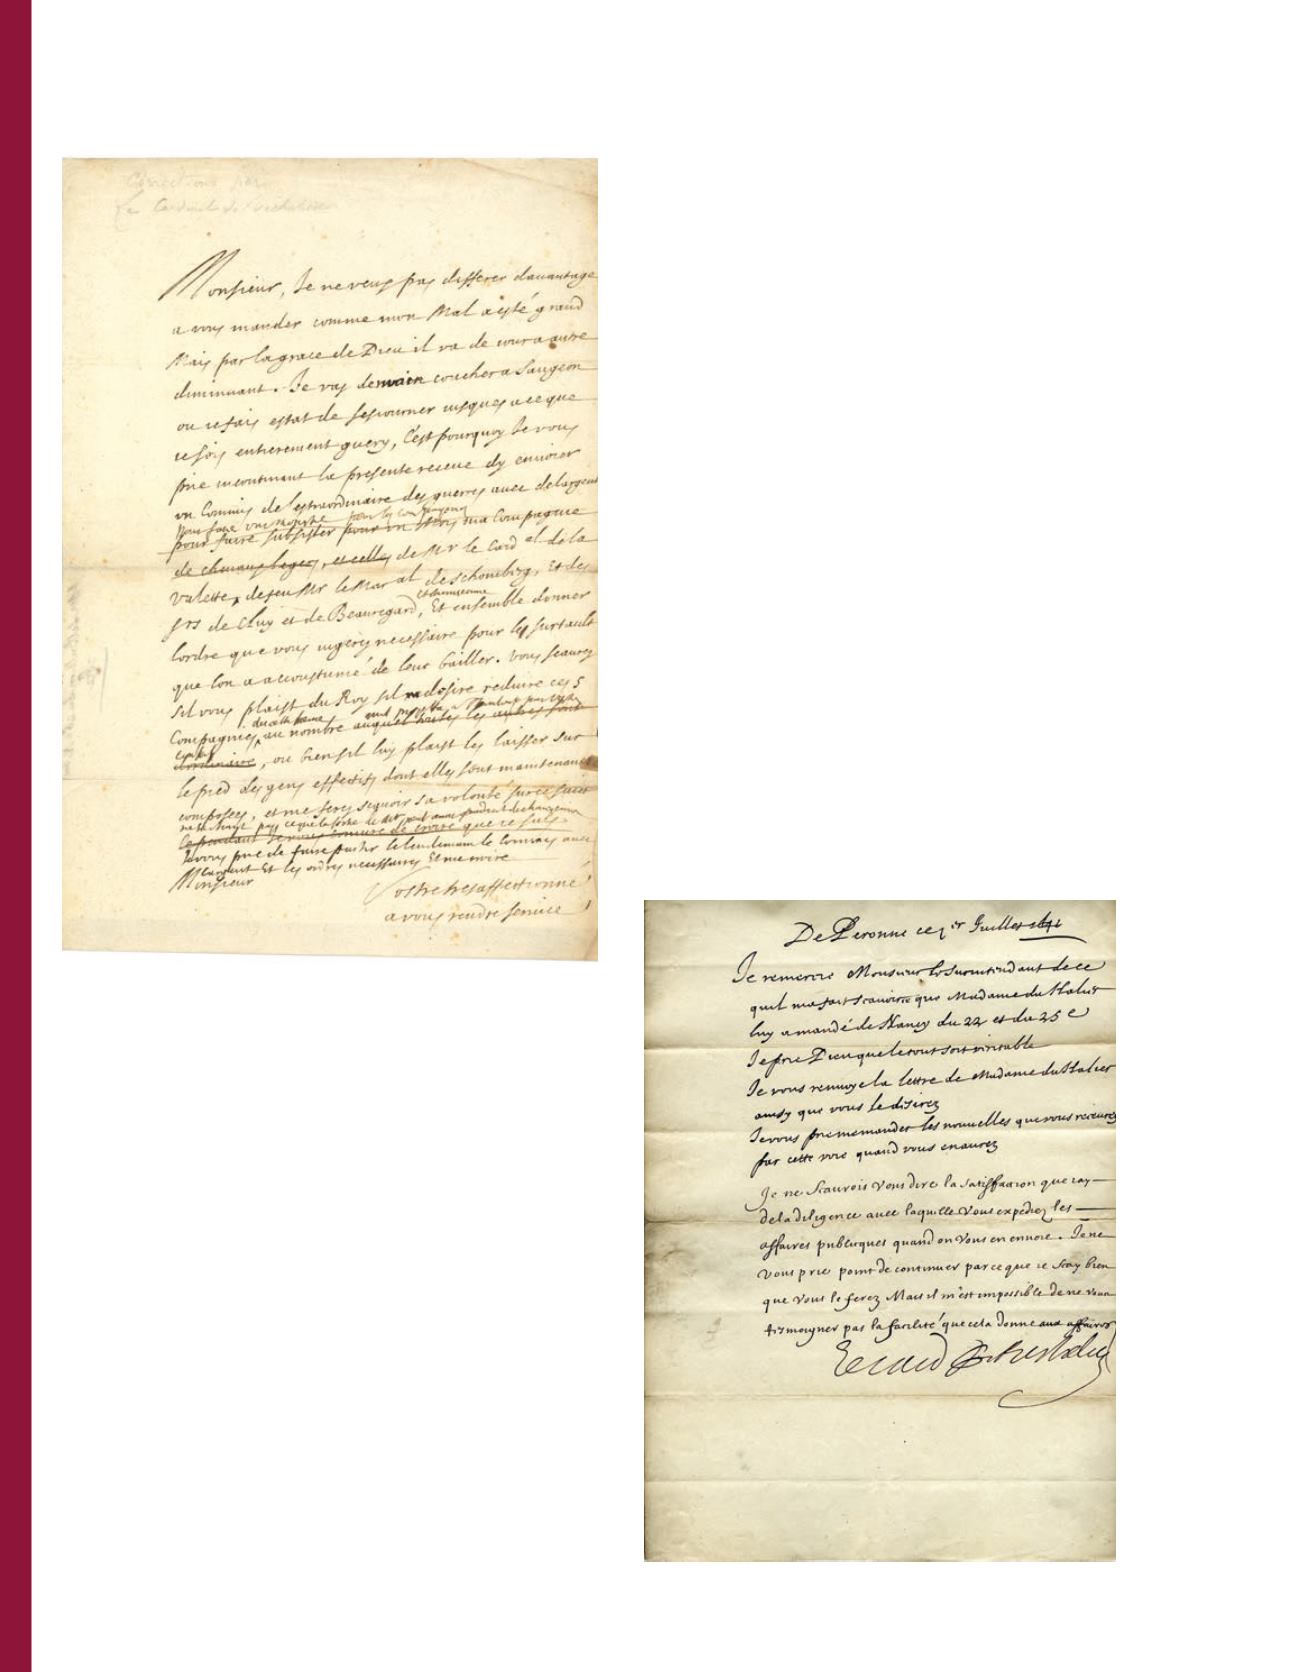 Corrections par
le Cardinal de Richelieu
Monsieur, Je ne veux pas differer dauantage
a vous mander comme mon Mal a esté grand
Mais par la grace de Dieu il va de iour a autre
diminuant. Je vay demain coucher a Saugeon
ou ie fais estat de seiourner iusques a ce que
ie sois entierement guery, C'est pourquoy Je vous
prie incontinant la presente receue dy enuoier
un Commis de l'extraordinaire des guerres auec de largent
pour faire une monstre
pour faire subsister pour un mois ma Compagnie
de cheuaux legers, et celles de Mr le Card al de la
Valette, de feu Mr le Mar al de Schomberg, Et des
srs de Cluy et de Beauregard, Et ensemble donner
lordre que vous iugerez necessaire pour le surtault
que lon a accoustumé de leur bailler. Vous scaurez
sil vous plaist du Roy sil desire reduire ces 5
Compagnies au nombre auquel toutes les autres sont
dordinaire, ou bien sil luy plaist les laisser sur
le pied des gens effectifs dont elles sont maintenant
composées, et me ferez scauoir sa volonté sur ce suiet
Cependant Je vous coniure de croire que ie suis
Je vous prie de faire partir le lendemain le Commis auec
largent Et les ordres necessaires Et me croire
Monsieur
Vostre tres affectionné
a vous rendre seruice
De Peronne ce 1er Juillet 1641
Je remercie Monsieur le Surintendant de ce
quil ma fait scauoir que Madame du Halier
luy a mandé de Nancy du 22 et du 25 e
Je prie Dieu que le tout soit veritable
Je vous renuoye la lettre de Madame du Halier
ainsy que vous le desirez
Je vous prie me mander les nouuelles que vous receurez
par cette voie quand vous en aurez
Je ne scaurois vous dire la satisfaction que iay
de la diligence auec laquelle vous expediez les
affaires publiques quand on vous en enuoie. Je ne
vous prie point de continuer parce que ie scay bien
que vous le ferez Mais il m'est impossible de ne vous
tesmoigner pas la facilité que cela donne aux affaires
Le Card de Richelieu